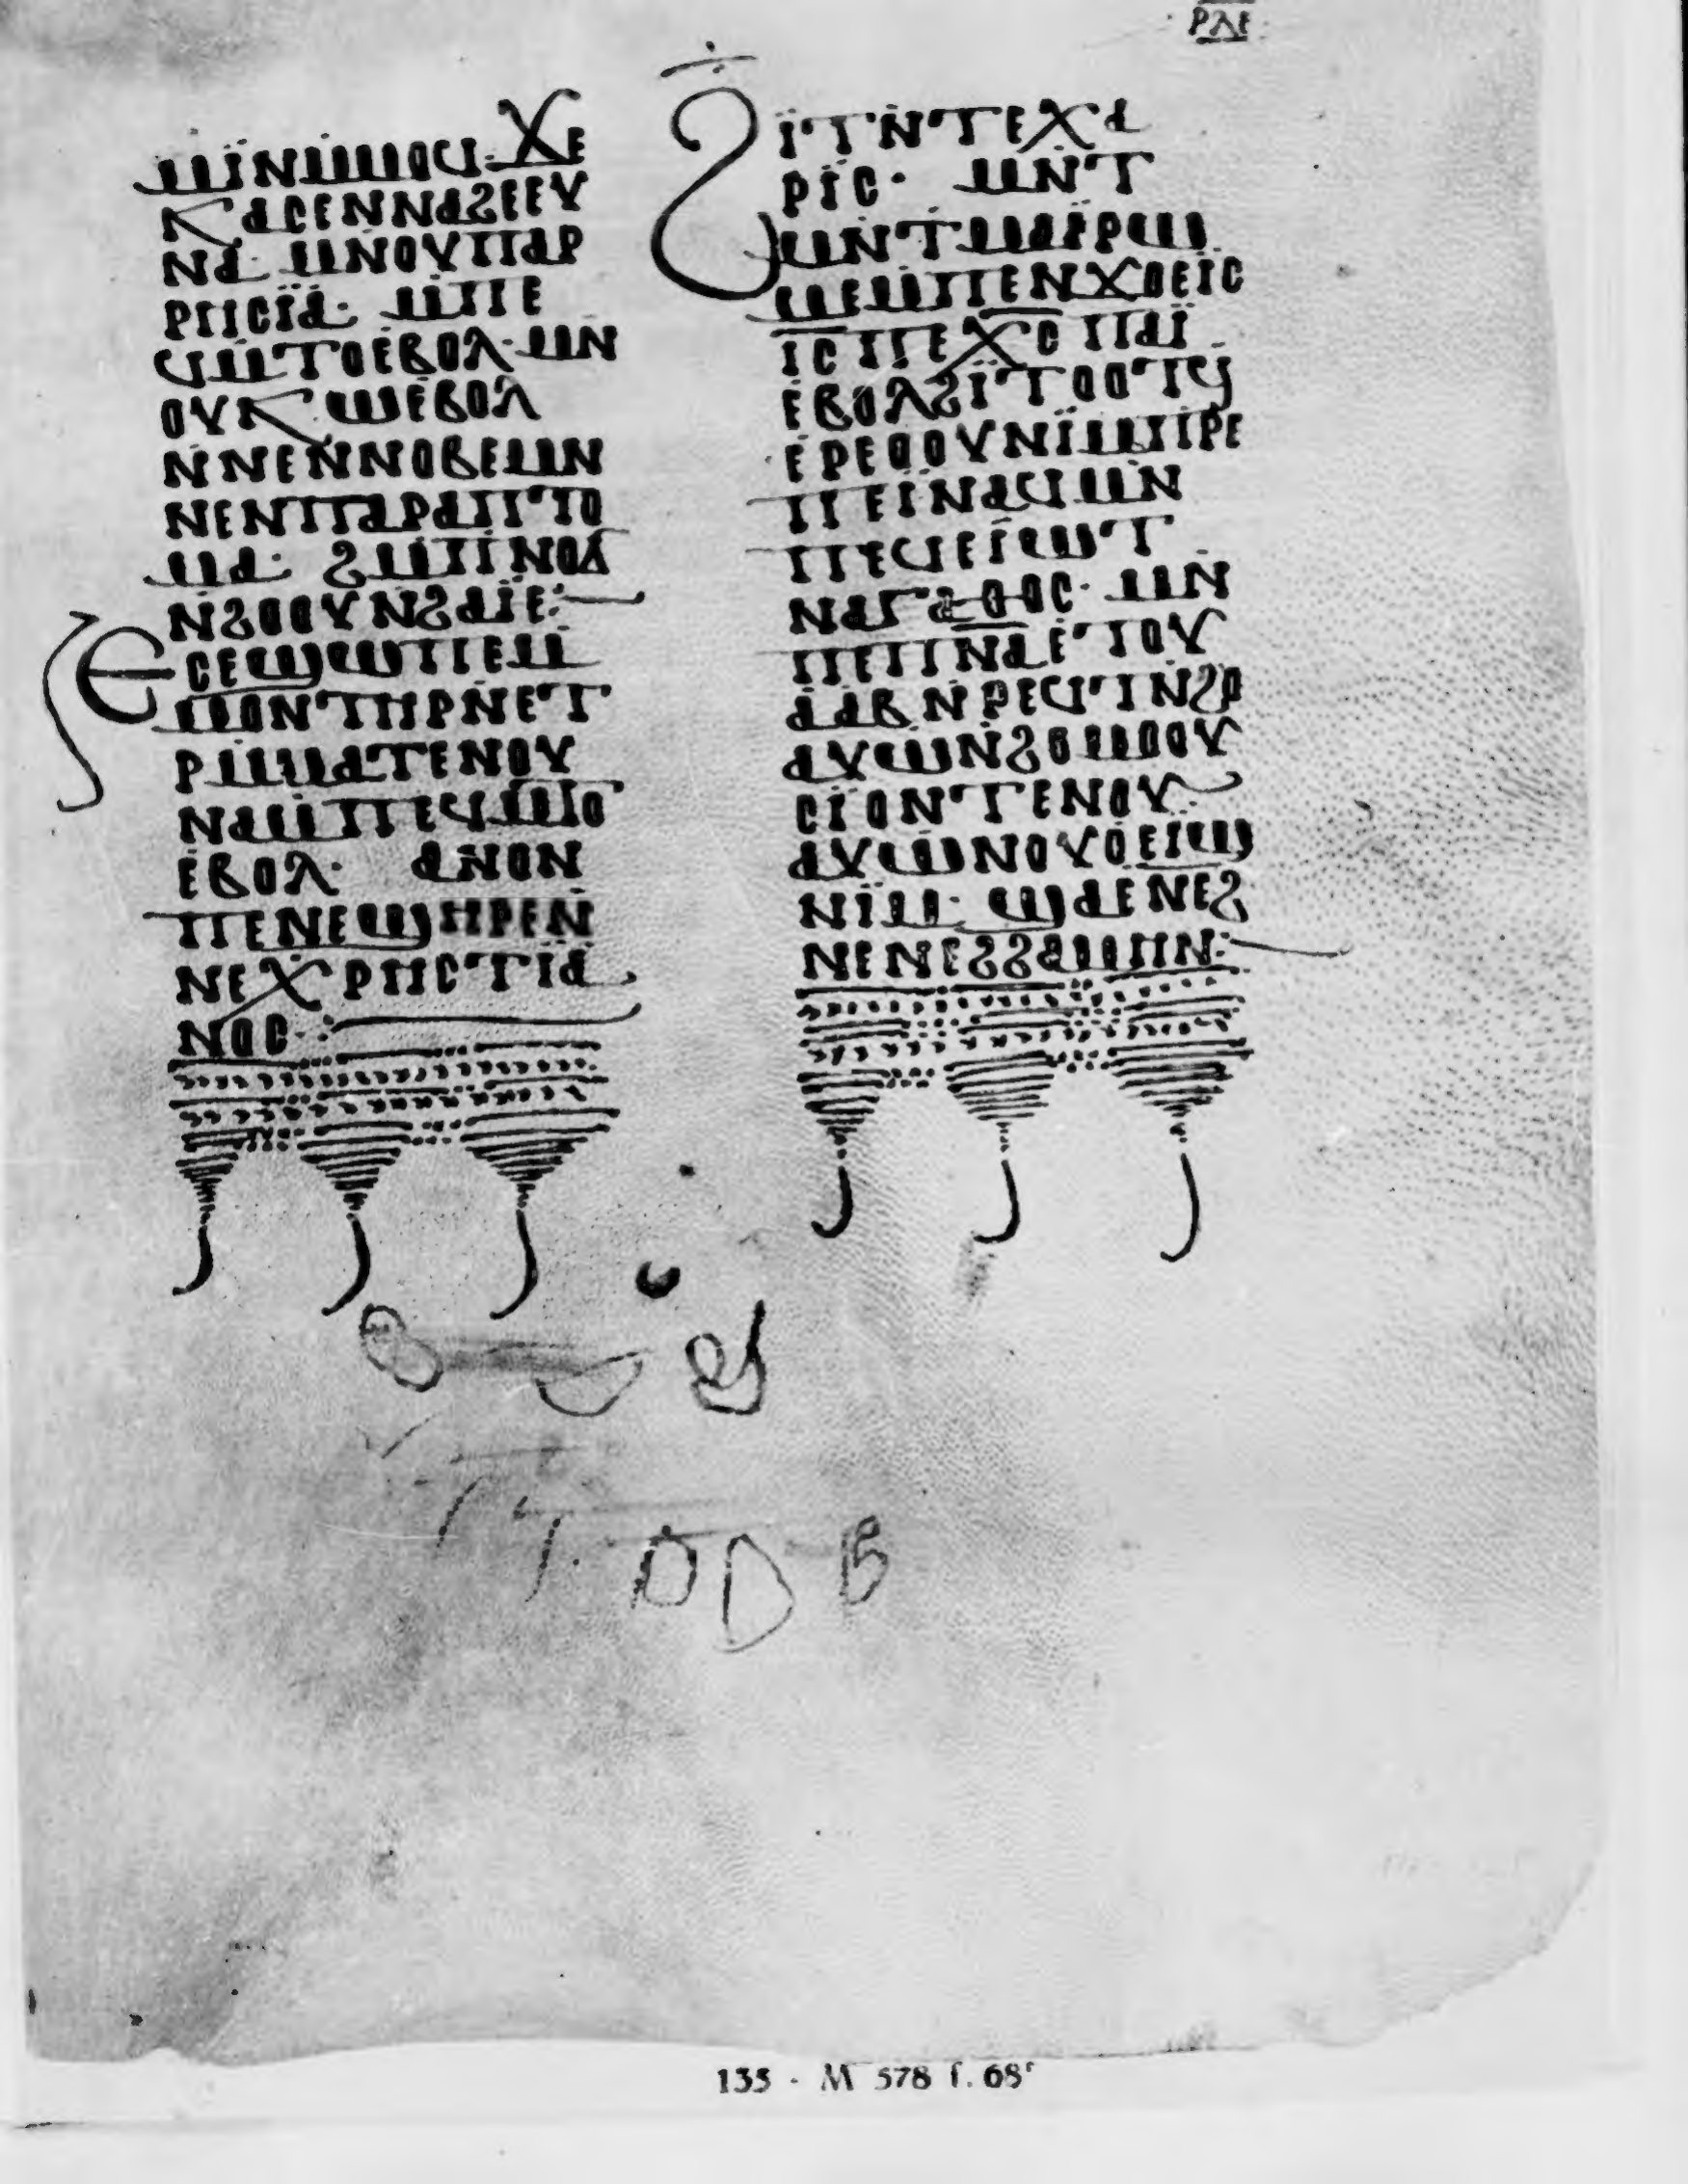 ⲢⲖⲈ
ⲘⲒⲚⲘⲘⲞϤ· ϪⲈ
ⲔⲀⲤⲈⲚⲚⲀϨⲈⲈⲨ
ⲚⲀ· ⲘⲚⲞⲨⲠⲀⲢ
ⲢⲎⲤⲒⲀ· ⲘⲠⲈ
ϤⲘⲦⲞⲈⲂⲞⲖ· ⲘⲚ
ⲞⲨⲔⲰⲈⲂⲞⲖ
ⲚⲚⲈⲚⲚⲞⲂⲈⲘⲚ
ⲚⲈⲚⲠⲀⲢⲀⲠⲦⲰ
ⲘⲀ· ϨⲘⲠⲒⲚⲞϬ
ⲚϨⲞⲞⲨⲚϨⲀⲒⲈ·
ⲈⲤⲈϢⲰⲠⲈⲘ
ⲘⲞⲚⲦⲎⲢⲚⲈⲦ
ⲢⲠⲘⲀⲦⲈⲚⲞⲨ
ⲚⲀⲘⲠⲈϤⲘⲦⲞ
ⲈⲂⲞⲖ· ⲀⲚⲞⲚ
ⲠⲈⲚⲈϢⲎⲢⲈⲚ
ⲚⲈⲬⲢⲎⲤⲦⲒⲀ
ⲚⲞⲤ·
ϨⲒⲦⲚⲦⲈⲬⲀ
ⲢⲒⲤ· ⲘⲚⲦ
ⲘⲚⲦⲘⲀⲒⲢⲰ
ⲘⲈⲘⲠⲈⲚϪⲞⲈⲒⲤ
ⲒⲤ ⲠⲈⲬⲤ ⲠⲀⲒ
ⲈⲂⲞⲖϨⲒⲦⲞⲞⲦϤ
ⲈⲢⲈⲈⲞⲞⲨⲚⲒⲘⲠⲢⲈ
ⲠⲈⲒⲚⲀϤⲘⲚ
ⲠⲈϤⲈⲒⲰⲦ
ⲚⲀⲄⲀⲐⲞⲤ· ⲘⲚ
ⲠⲈⲠⲚⲀⲈⲦⲞⲨ
ⲀⲀⲂⲚⲢⲈϤⲦⲚϨⲞ
ⲀⲨⲰⲚϨⲞⲘⲞⲞⲨ
ⲤⲒⲞⲚⲦⲈⲚⲞⲨ·
ⲀⲨⲰⲚⲞⲨⲞⲈⲒϢ
ⲚⲒⲘ· ϢⲀⲈⲚⲈϨ
ⲚⲈⲚⲈϨϨⲀⲘⲎⲚ·
135 - M 578 f. 68r